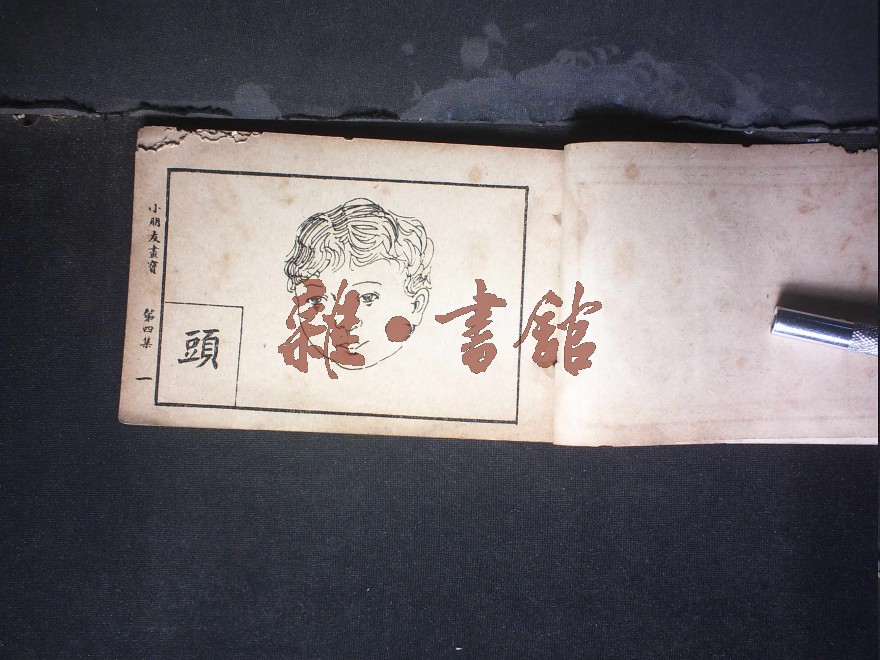 小朋友畫寶 第四集 一
頭
雜·書館